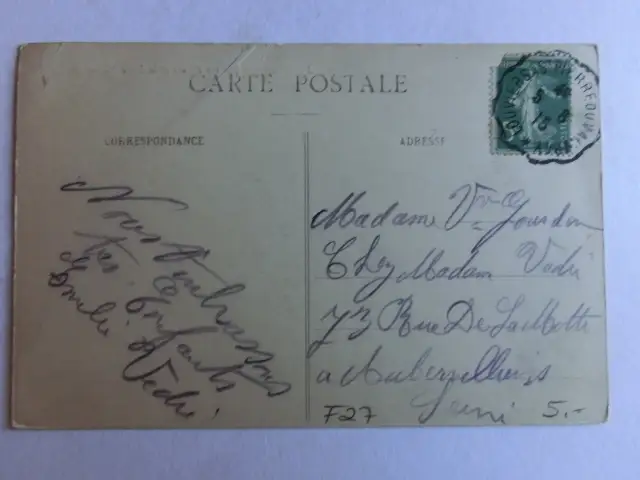 CARTE POSTALE
CORRESPONDANCE
ADRESSE
Nous t'embrassons
tes Enfants
Emilie Vedri
Madame Vve Jourdan
Chez Madam Vedri
73 Rue De La Motte
a Aubervilliers
Seine
F27
5.-